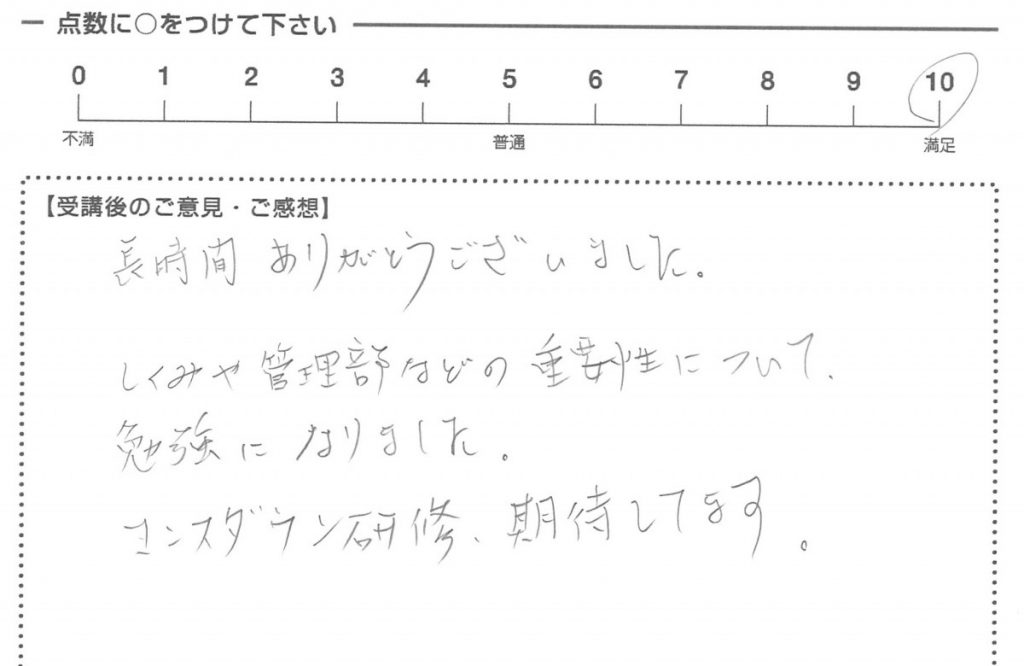 点数に○をつけて下さい
0 1 2 3 4 5 6 7 8 9 10
不満 普通 満足
【受講後のご意見・ご感想】
長時間ありがとうございました。
しくみや管理部などの重要性について、
勉強になりました。
コンスダウン研修、期待してます。